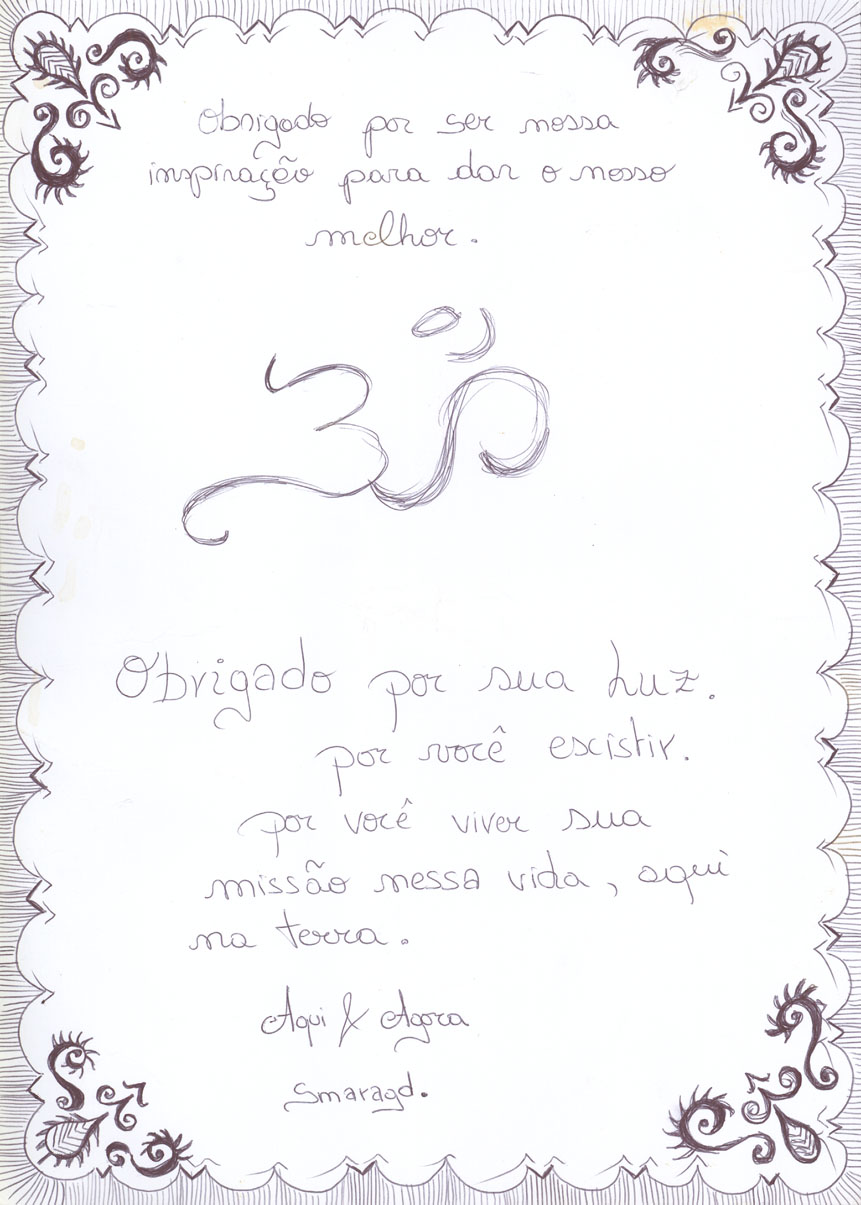 Obrigado por ser nossa
inspiração para dar o nosso
melhor.
ॐ
Obrigado por sua Luz.
por você escistir.
por você viver sua
missão nessa vida, aqui
na terra.
Aqui & Agora
Smaragd.